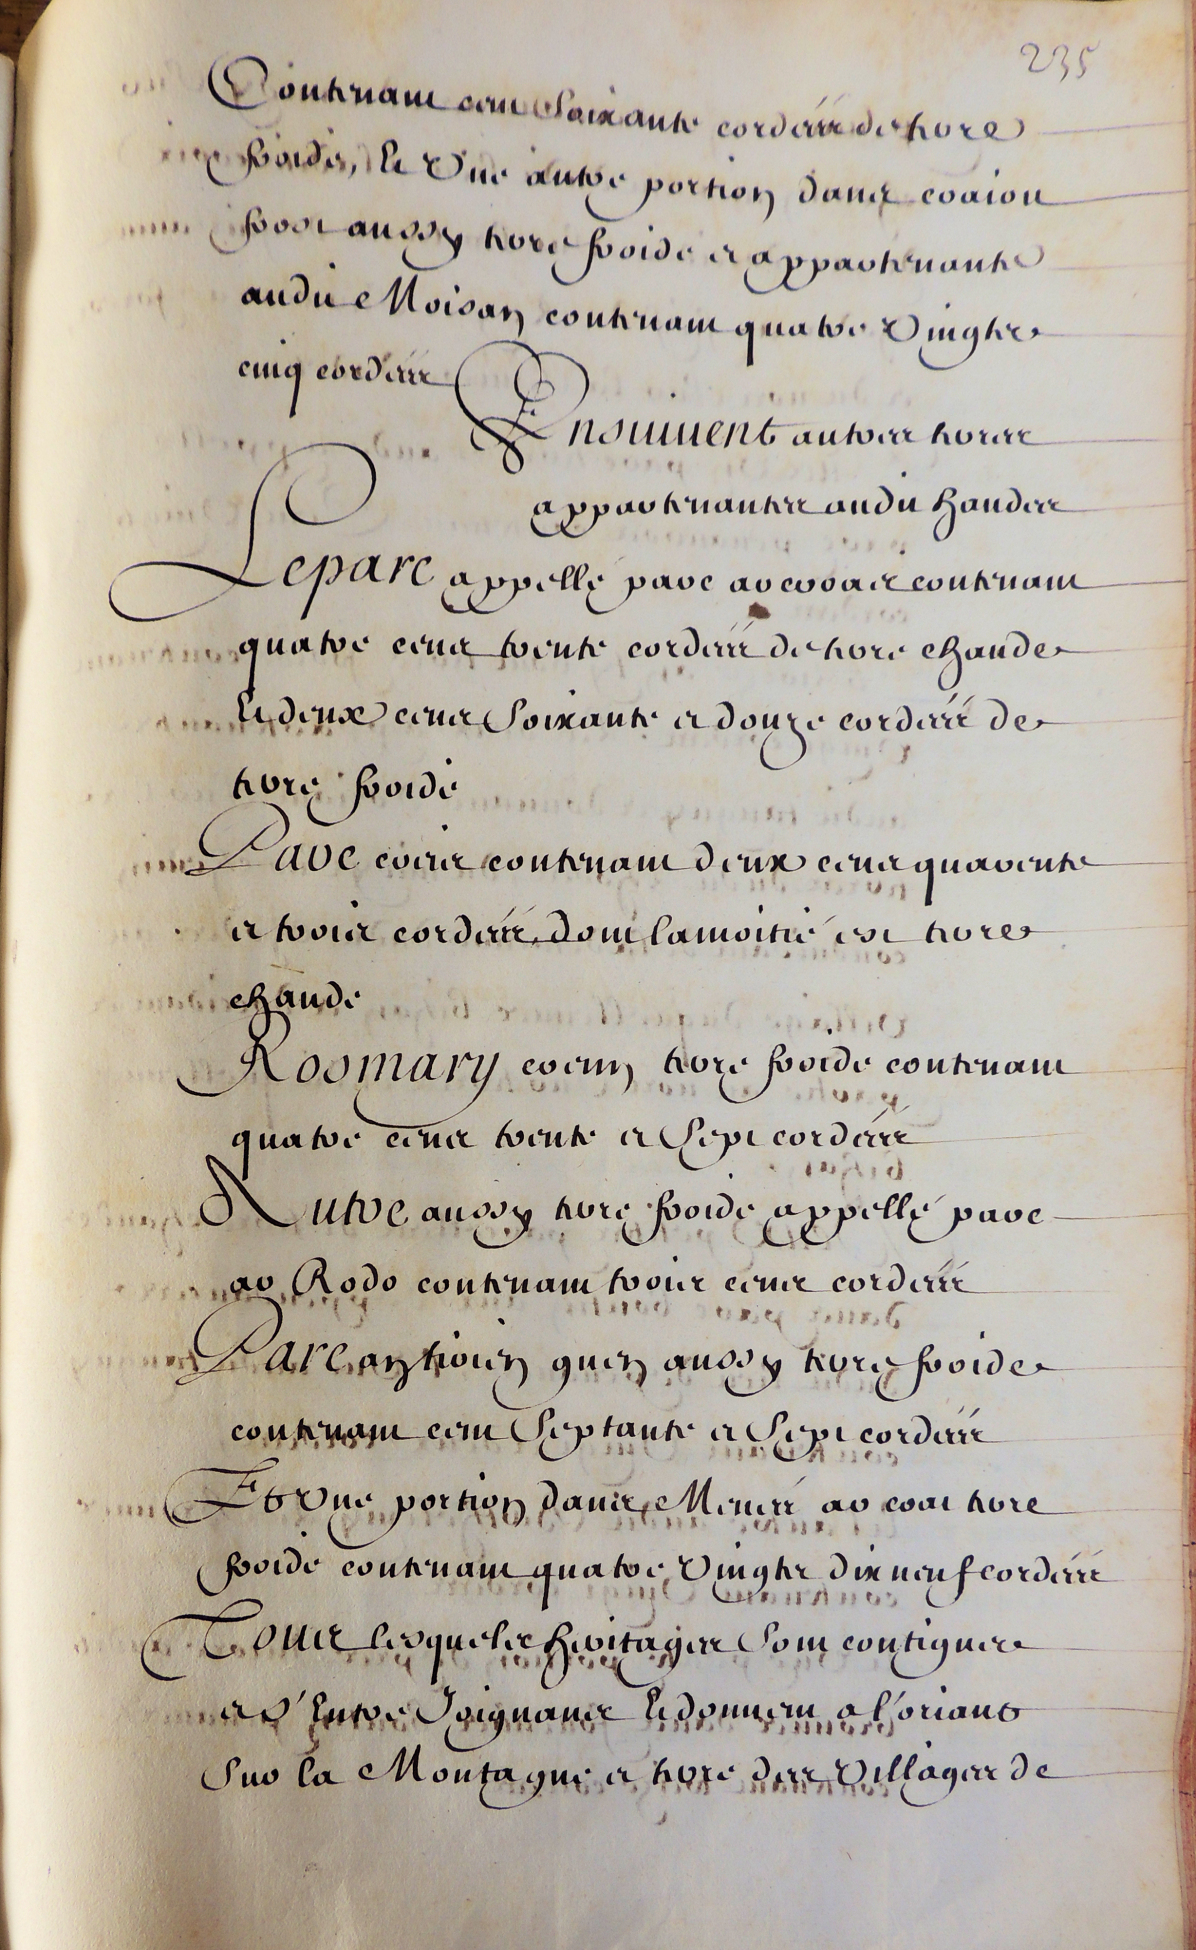 235
Contenant cent Soixante cordées de terre
froide, Et Une autre portion dans
aussy terre froide et appartenante
audit Moisan contenant quatre Vingts
cinq cordées
Ensuivent autres terres
appartenantes audit handes
Le parc appellé parc ar contenant
quatre cens trente cordées de terre chaude
Et deux cens Soixante et douze cordées de
terre froide
Parc creis contenant deux cens quarente
et trois cordées, dont la moitié est terre
chaude
Rosmary creun terre froide contenant
quatre cens trente et Sept cordées
Autre aussy terre froide appellé parc
ar Rodo contenant trois cens cordées
Parc an guen aussy terre froide
contenant cent Septante et Sept cordées
Et Une portion dans Menez ar coat terre
froide contenant quatre Vingts dix neuf cordées
Tous lesquels heritages Sont contigues
et s'Entre Joignans Et donnent a l'oriant
Sur la Montagne et terre des Villages de